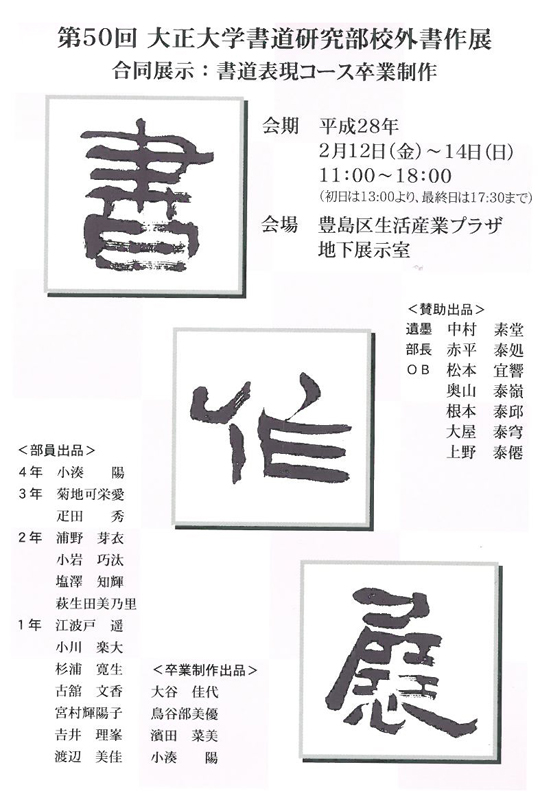 第50回 大正大学書道研究部校外書作展
合同展示：書道表現コース卒業制作
書
会期 平成28年
2月12日(金)～14日(日)
11:00～18:00
(初日は13:00より、最終日は17:30まで)
会場 豊島区生活産業プラザ
地下展示室
作
＜賛助出品＞
遺墨 中村 素堂
部長 赤平 泰処
ＯＢ 松本 宜響
奥山 泰嶺
根本 泰邱
大屋 泰穹
上野 泰僊
展
＜部員出品＞
4年 小湊 陽
3年 菊地可栄愛
疋田 秀
2年 浦野 芽衣
小岩 巧汰
塩澤 知輝
萩生田美乃里
1年 江波戸 遥
小川 楽大
杉浦 寛生
古舘 文香
宮村輝陽子
𠮷井 理峯
渡辺 美佳
＜卒業制作出品＞
大谷 佳代
鳥谷部美優
濱田 菜美
小湊 陽